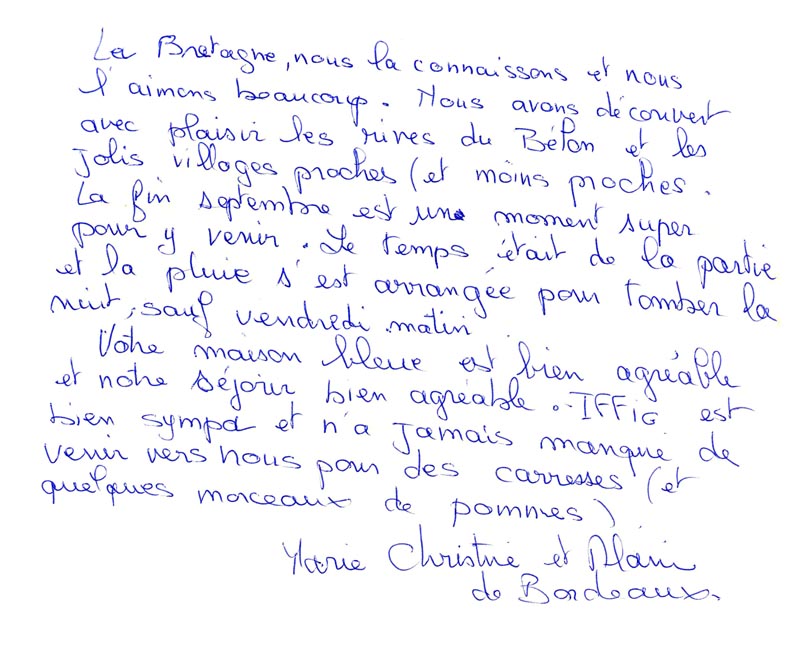 La Bretagne, nous la connaissons et nous
l'aimons beaucoup. Nous avons découvert
avec plaisir les rives du Bélon et les
jolis villages proches (et moins proches.
La fin septembre est un moment super
pour y venir. Le temps était de la partie
et la pluie s'est arrangée pour tomber la
nuit, sauf vendredi matin.
Votre maison bleue est bien agréable
et notre séjour bien agréable. IFFIG est
bien sympa et n'a jamais manqué de
venir vers nous pour des carresses (et
quelques morceaux de pommes)
Marie Christine et Alain
de Bordeaux.